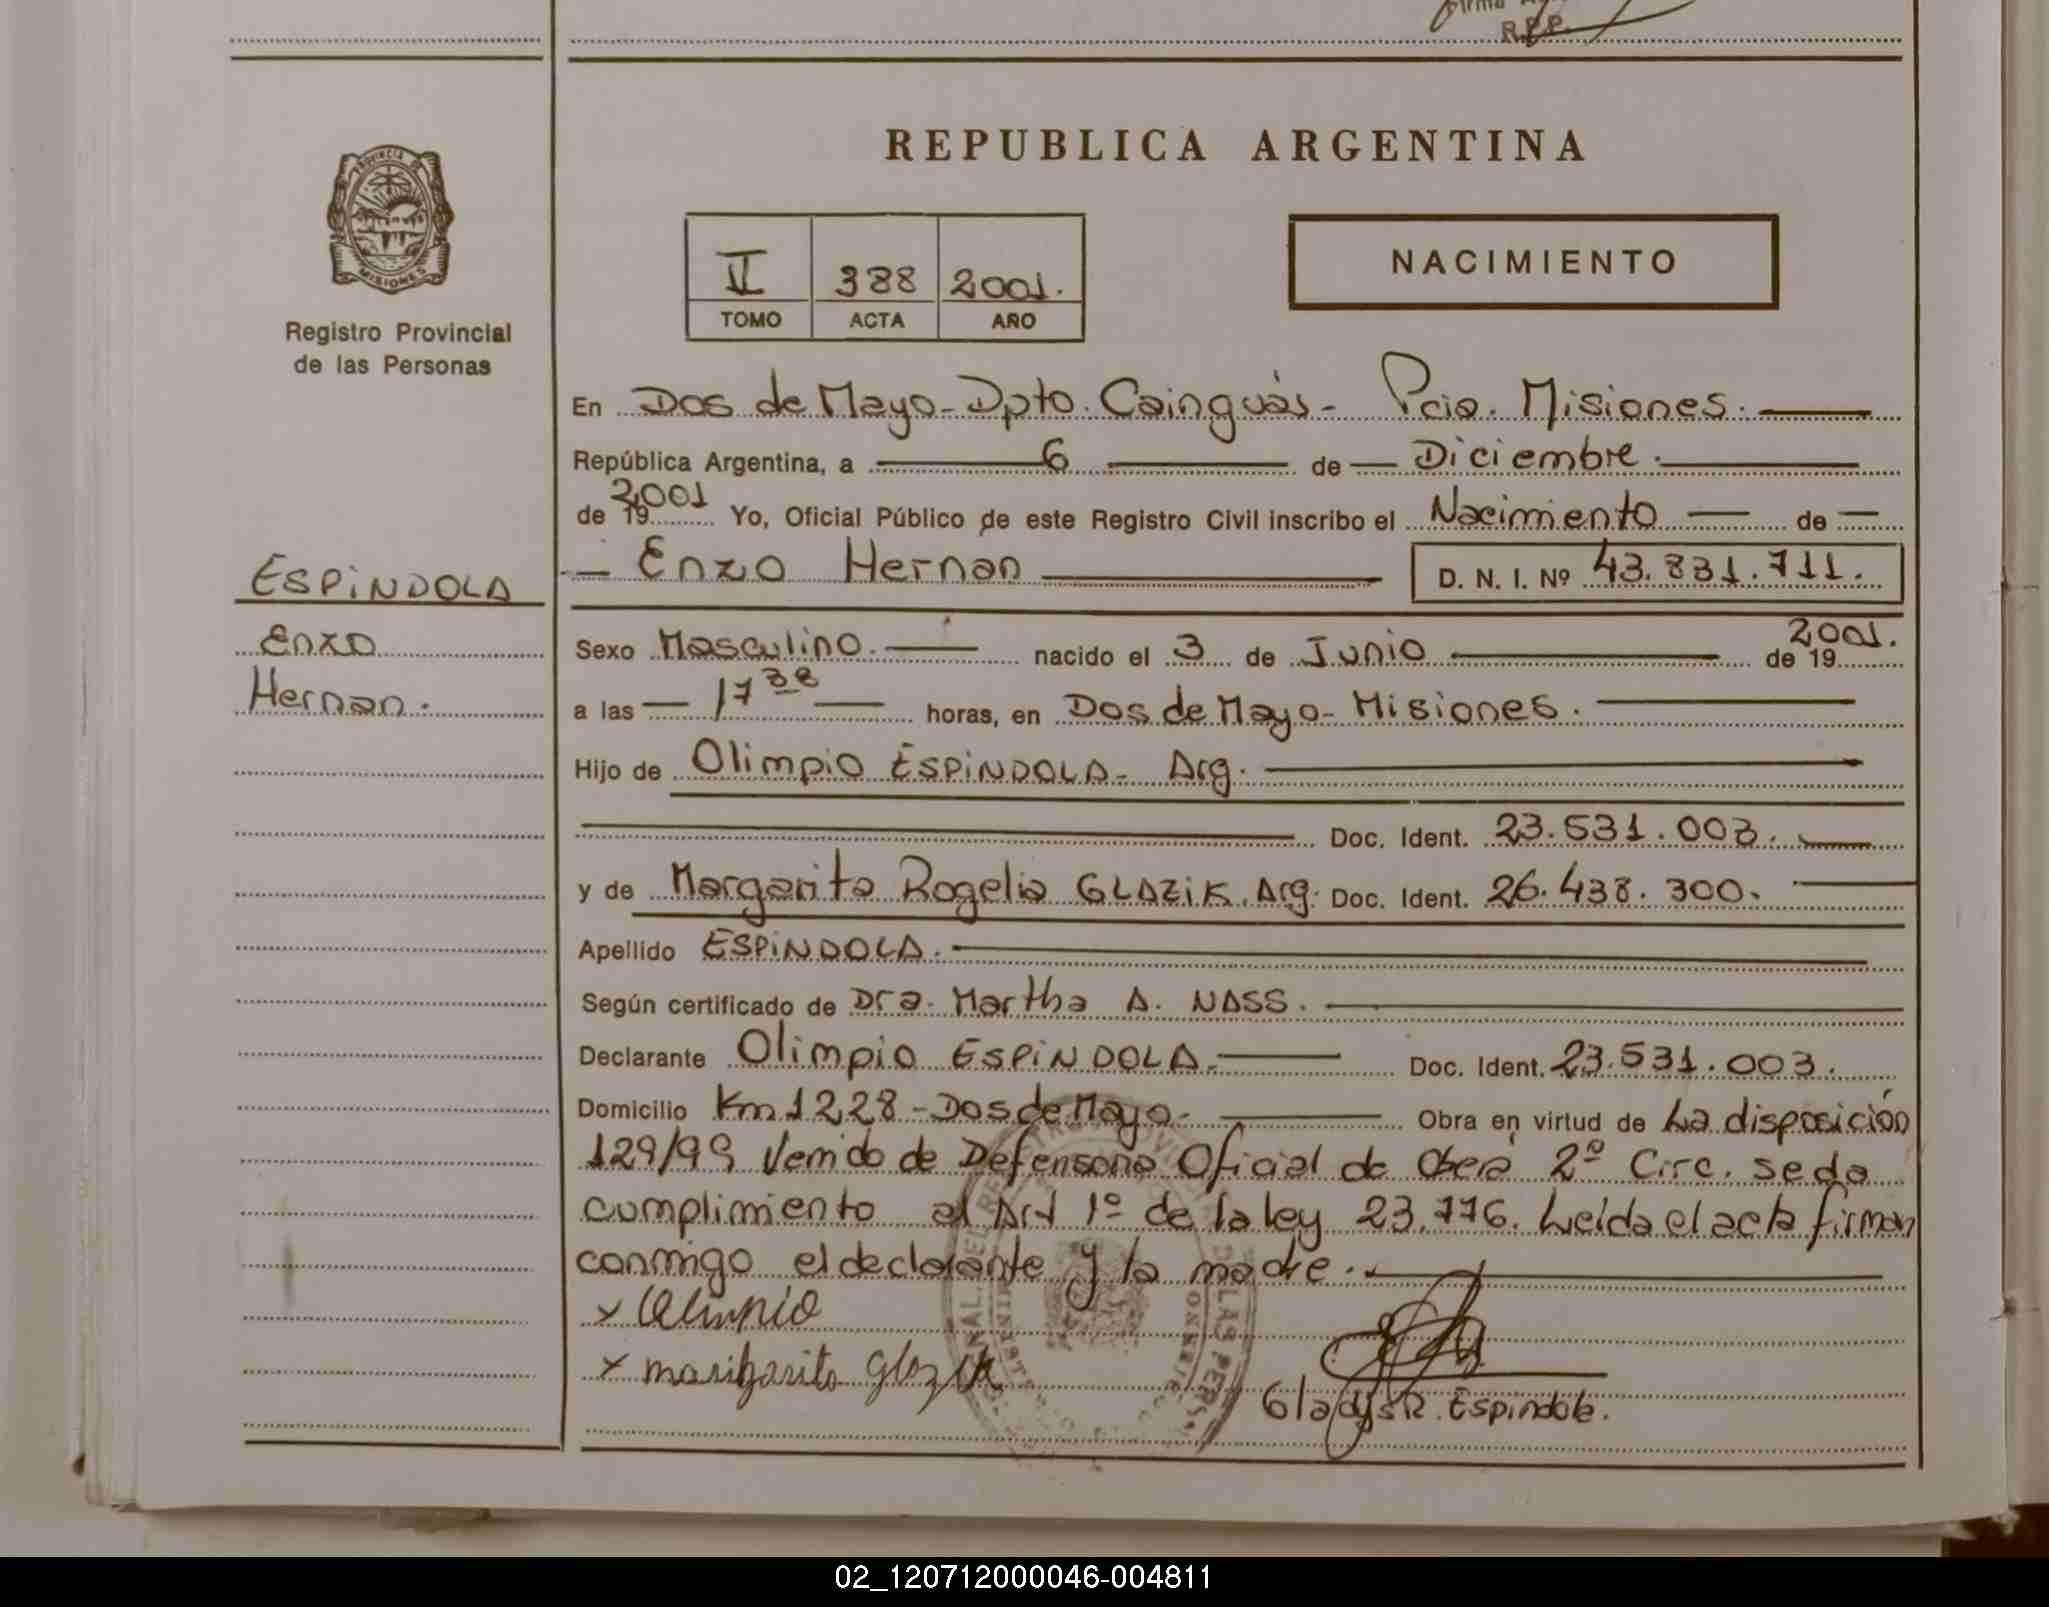 R.P.P.
REPUBLICA ARGENTINA
PROVINCIA DE
MISIONES
Registro Provincial
de las Personas
II 388 2001.
TOMO ACTA AÑO
NACIMIENTO
En Dos de Mayo - Dpto. Cainguás - Pcia. Misiones.
República Argentina, a 6 de Diciembre.
de 19 2001 Yo, Oficial Público de este Registro Civil inscribo el Nacimiento de
Enzo Hernan D. N. I. Nº 43.831.711.
ESPiNDOLA
Enzo
Hernan.
Sexo Masculino. nacido el 3 de Junio de 19 2001.
a las 17 38 horas, en Dos de Mayo - Misiones.
Hijo de Olimpio ESPiNDOLA - Arg.
Doc. Ident. 23.531.003.
y de Margarita Rogelia GLAZiK. Arg. Doc. Ident. 26.438.300.
Apellido ESPiNDOLA.
Según certificado de Dra. Martha A. NASS.
Declarante Olimpio ESPiNDOLA. Doc. Ident. 23.531.003.
Domicilio Km 1228 - Dos de Mayo. Obra en virtud de La disposición
129/99 Venido de Defensoria Oficial de Oberá 2º Circ. se da
cumplimiento al Art 1º de la ley 23.776. Leida el acta firman
conmigo el declarante y la madre.
x Olimpio
x margarita Glazik
Gladys R. Espindola.
02_120712000046-004811